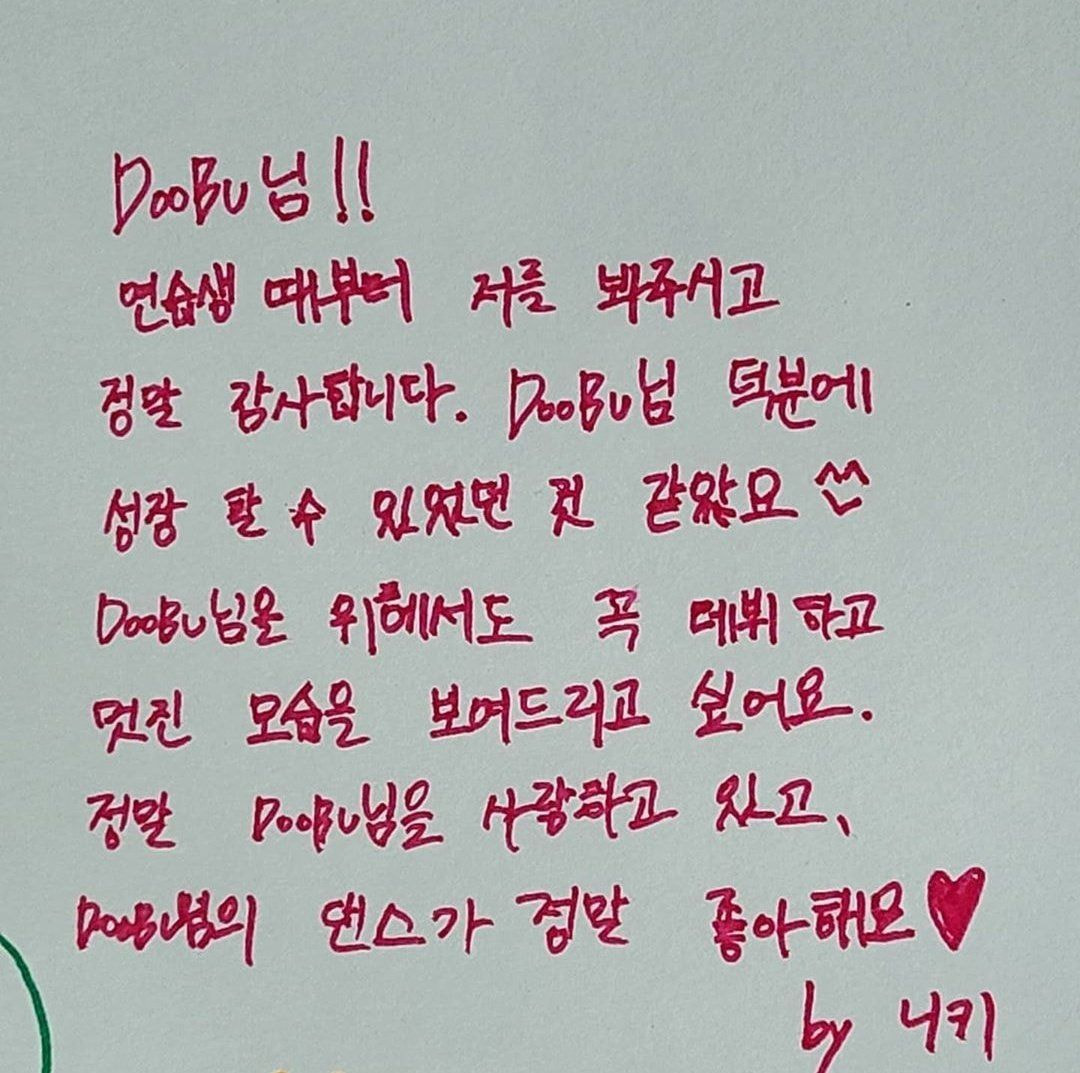 DooBu님!!
연습생 때부터 저를 봐주시고
정말 감사합니다. DooBu님 덕분에
성장 할 수 있었던 것 같았요 ^^
DooBu님을 위해서도 꼭 데뷔 하고
멋진 모습을 보여드리고 싶어요.
정말 DooBu님을 사랑하고 있고、
DooBu님의 댄스가 정말 좋아해요♥
by 니키